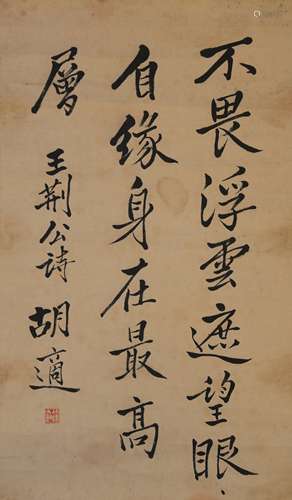 不畏浮雲遮望眼，
自緣身在最高
層 王荆公詩 胡適